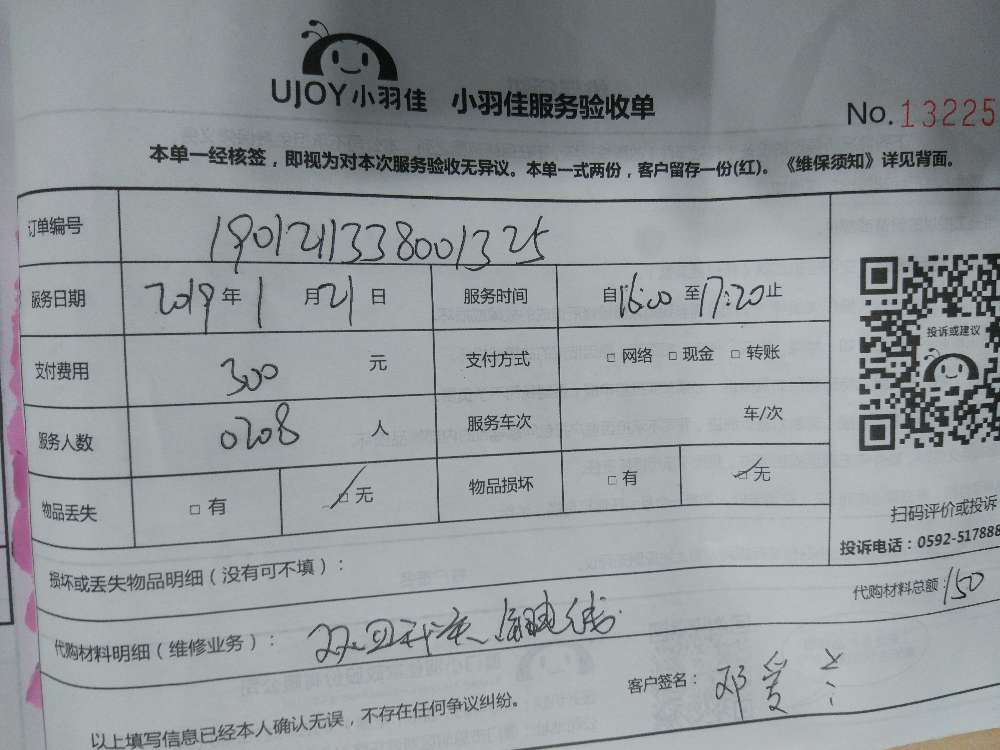 UJOY小羽佳 小羽佳服务验收单
No.13225
本单一经核签，即视为对本次服务验收无异议。本单一式两份，客户留存一份(红)。《维保须知》详见背面。
订单编号 1901211338001325
服务日期 2019年1月21日 服务时间 自16:00至17:20止
支付费用 300元 支付方式 □网络 □现金 □转账
服务人数 0208人 服务车次 车/次
物品丢失 □有 □无 物品损坏 □有 □无
投诉或建议
扫码评价或投诉
投诉电话：0592-517888
损坏或丢失物品明细（没有可不填）：
代购材料总额：150
代购材料明细（维修业务）：
客户签名：邓爱
以上填写信息已经本人确认无误，不存在任何争议纠纷。